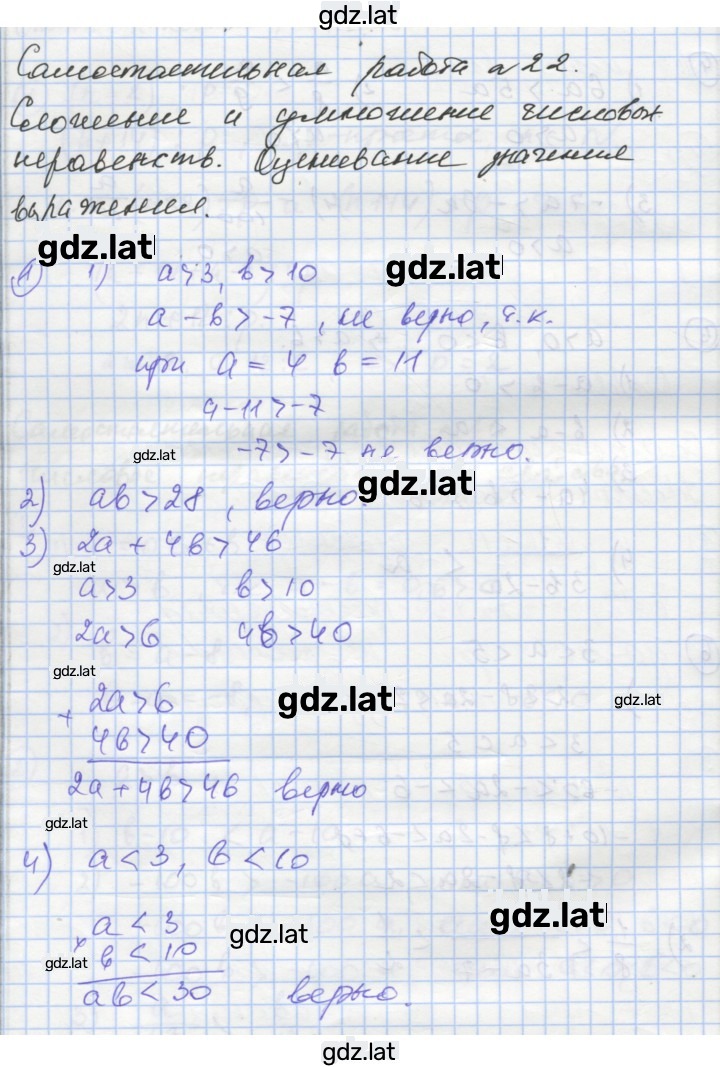 gdz.lat
Самостоятельная работа №22.
Сложение и умножение числовых
неравенств. Оценивание значения
выражения.
gdz.lat
gdz.lat
1) 1) a>3, b>10
a-b>-7, не верно, т.к.
при a=4 b=11
4-11>-7
-7>-7 не верно.
gdz.lat
gdz.lat
2) ab>28, верно.
3) 2a+4b>46
gdz.lat
a>3 b>10
2a>6 4b>40
gdz.lat
gdz.lat
gdz.lat
+ 2a>6
4b>40
2a+4b>46 верно
gdz.lat
4) a<3, b<10
gdz.lat
x a<3
gdz.lat
b<10
gdz.lat
ab<30 верно.
gdz.lat